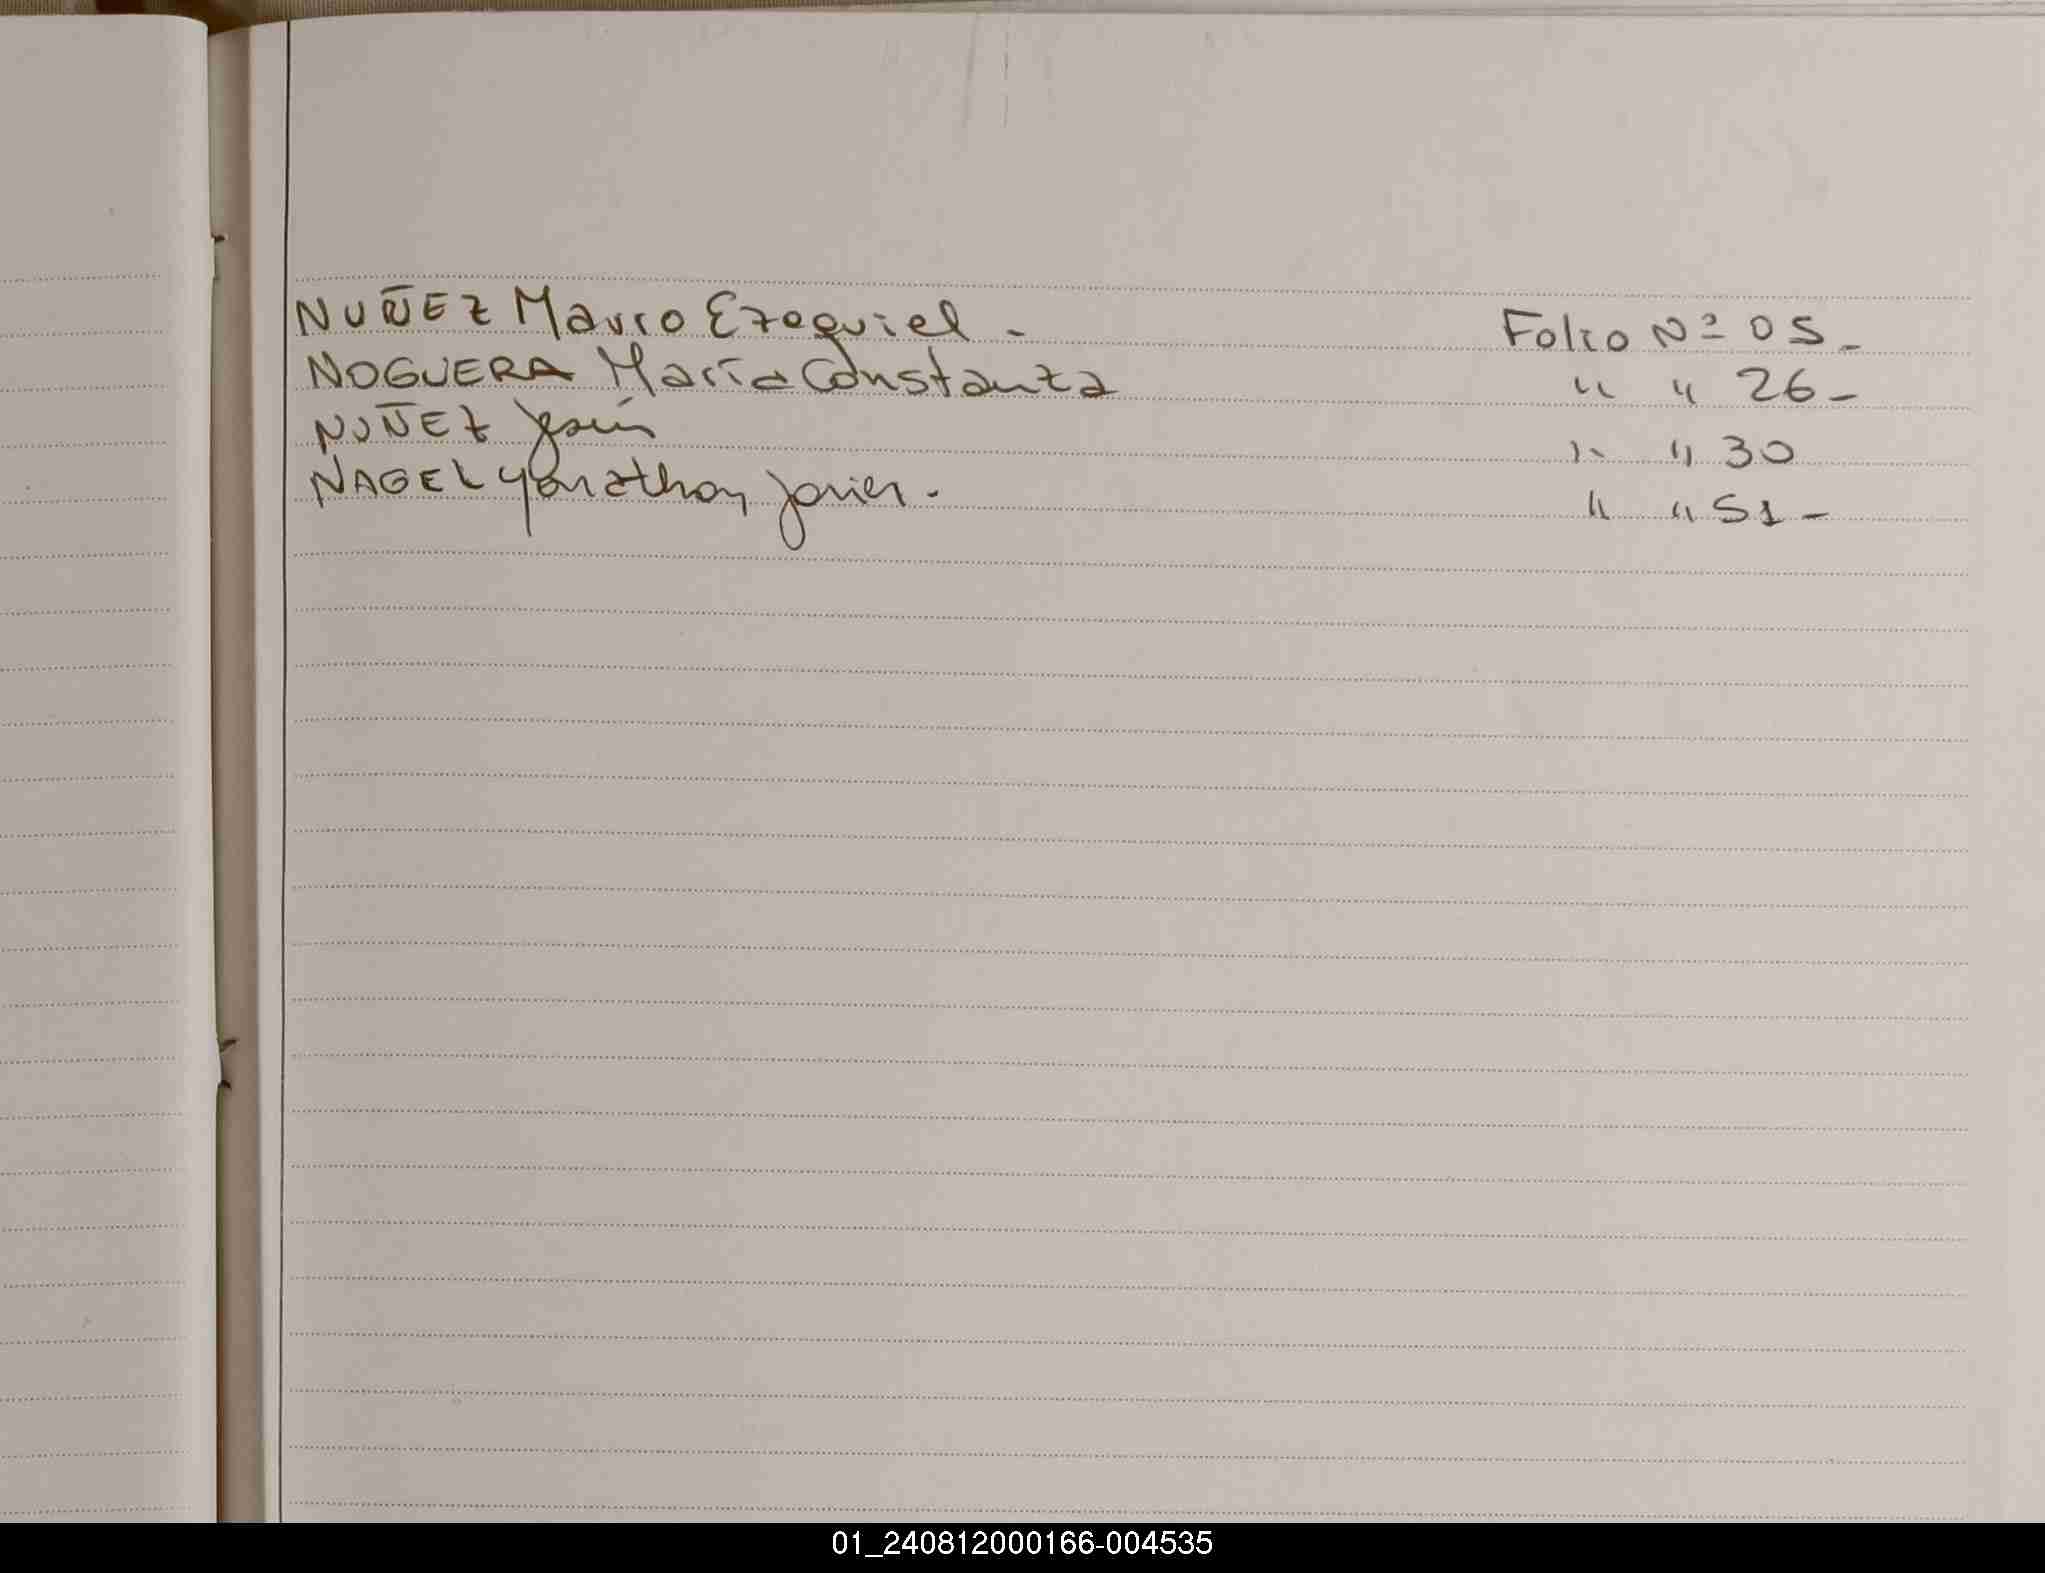 NUÑEZ Mauro Ezequiel - Folio Nº 05 -
NOGUERA María Constanza " " 26 -
NUÑEZ Jesús " " 30
NAGEL Yonathan Javier. " " 51 -
01_240812000166-004535